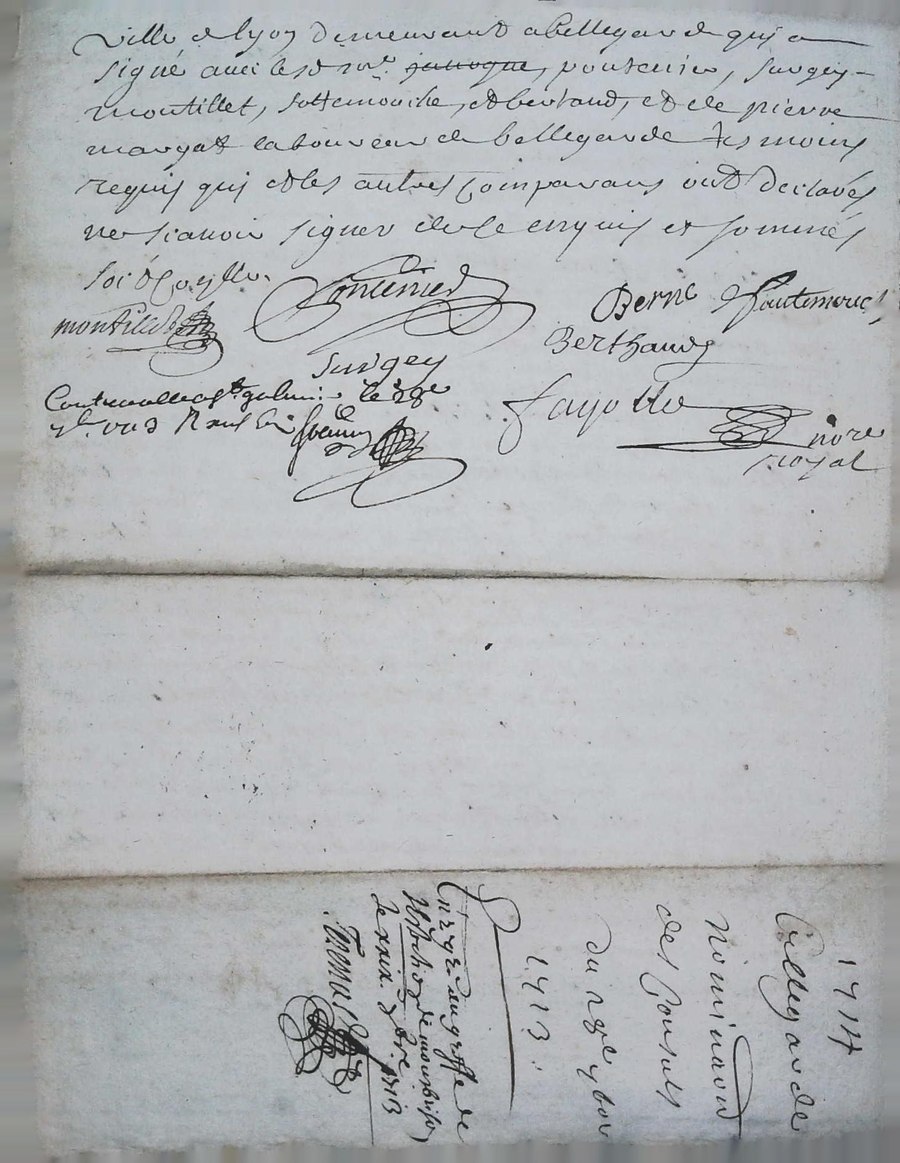 ville de lyon demeurant a bellegarde qui a
signé avec lesd janogue, pontenier, surgey
montillet, sottemouche, et bertaud, et de pierre
margat laboureur de bellegarde tesmoins
requis qui et les autres comparans ont declarés
ne scavoir signer de ce enquis et sommés
Pontenier
Berne Sautemouche
montillet
Berthaud
Surgey
le 28e
fayolle
nore
royal
1714
Bellegarde
Nominaon
des Consuls
du 28e 9bre
1713.
Enregé au greffe de
de montbrison
le xxix 9bre 1713